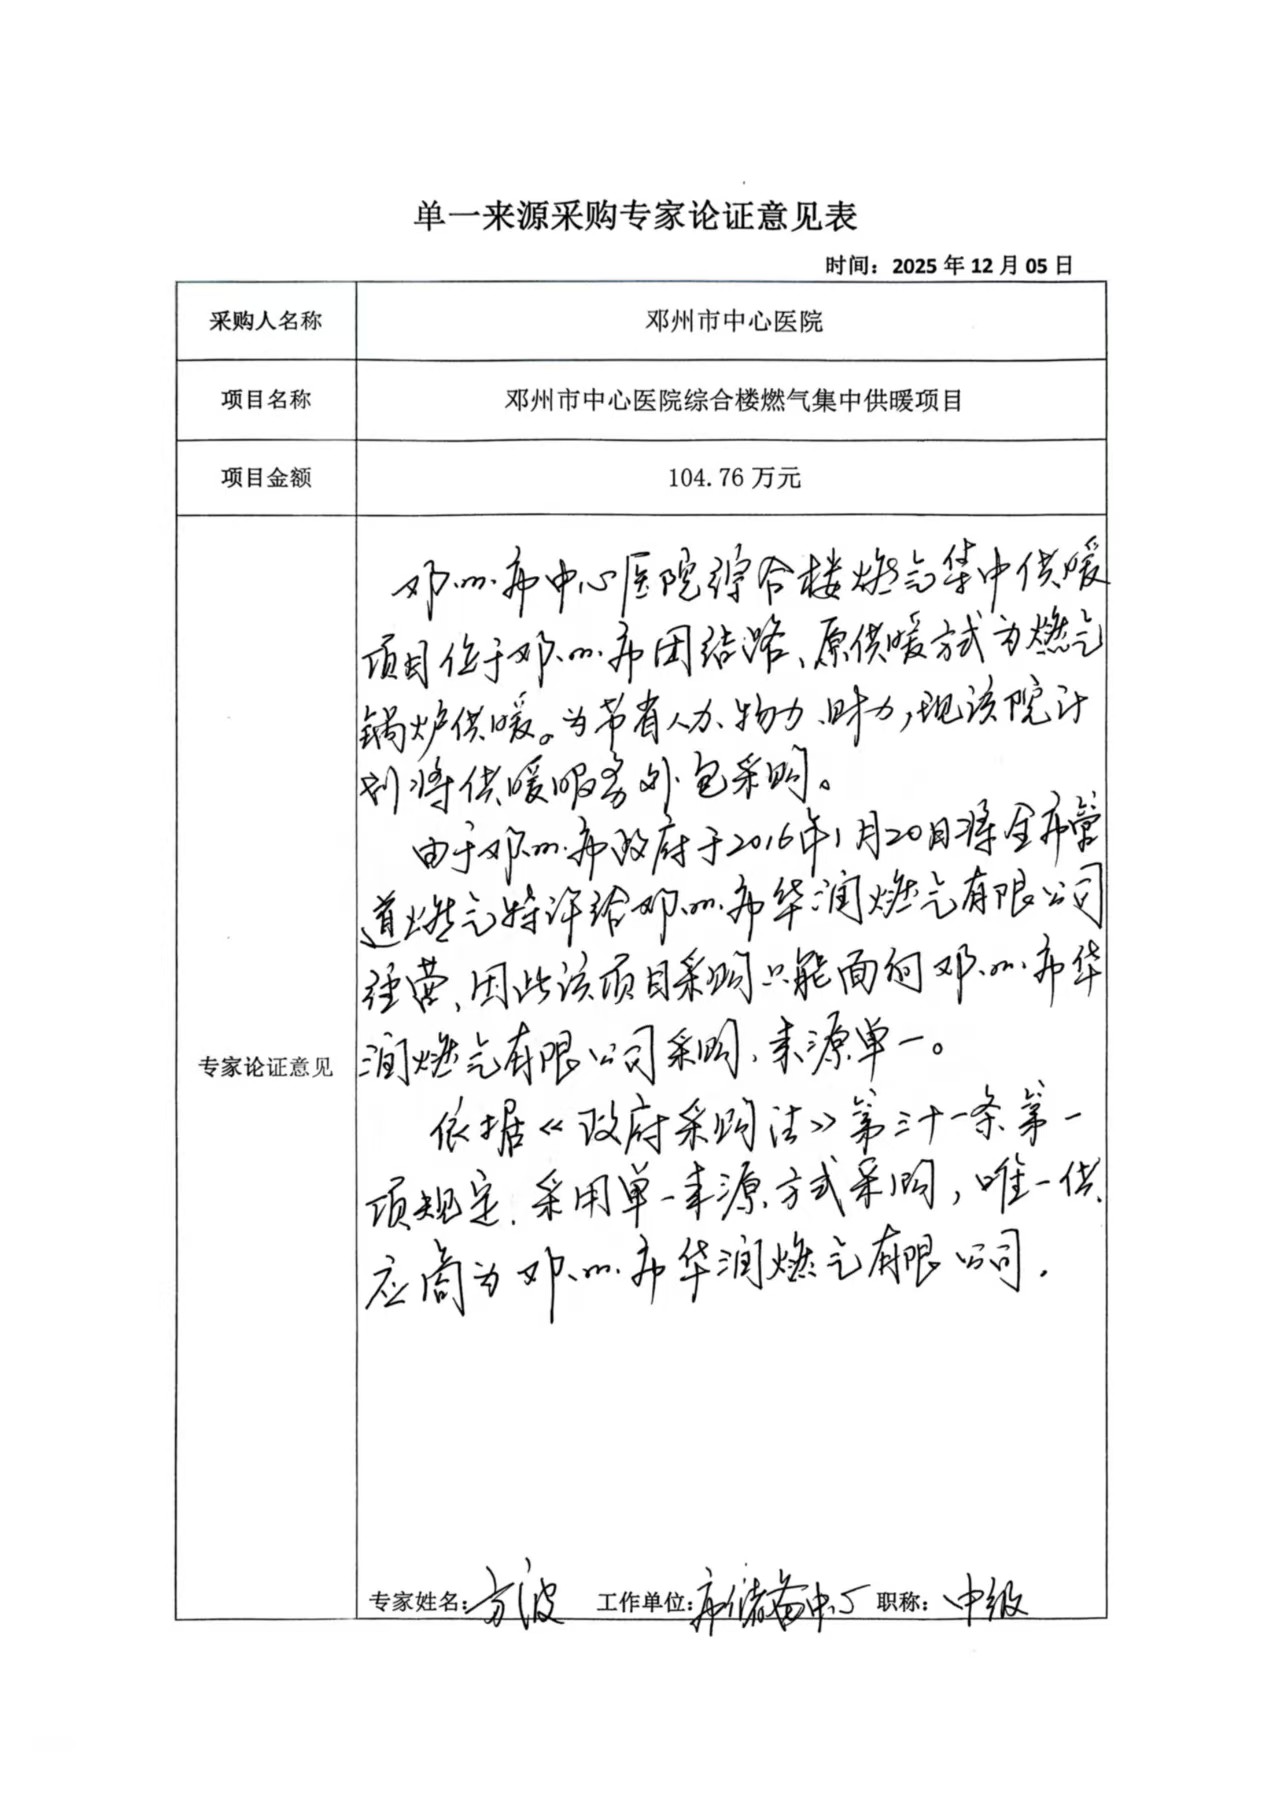 单一来源采购专家论证意见表
时间：2025 年 12 月 05 日
采购人名称
邓州市中心医院
项目名称
邓州市中心医院综合楼燃气集中供暖项目
项目金额
104.76 万元
专家论证意见
邓州市中心医院综合楼燃气集中供暖
项目位于邓州市团结路、原供暖方式为燃气
锅炉供暖。为节省人力、物力、财力，现该院计
划将供暖服务外包采购。
由于邓州市政府于2016年1月20日将全市管
道燃气特许给邓州市华润燃气有限公司
经营、因此该项目采购只能面向邓州市华
润燃气有限公司采购、来源单一。
依据《政府采购法》第三十一条第一
项规定、采用单一来源方式采购，唯一供
应商为邓州市华润燃气有限公司.
专家姓名：方波 工作单位：市储备中心 职称：中级